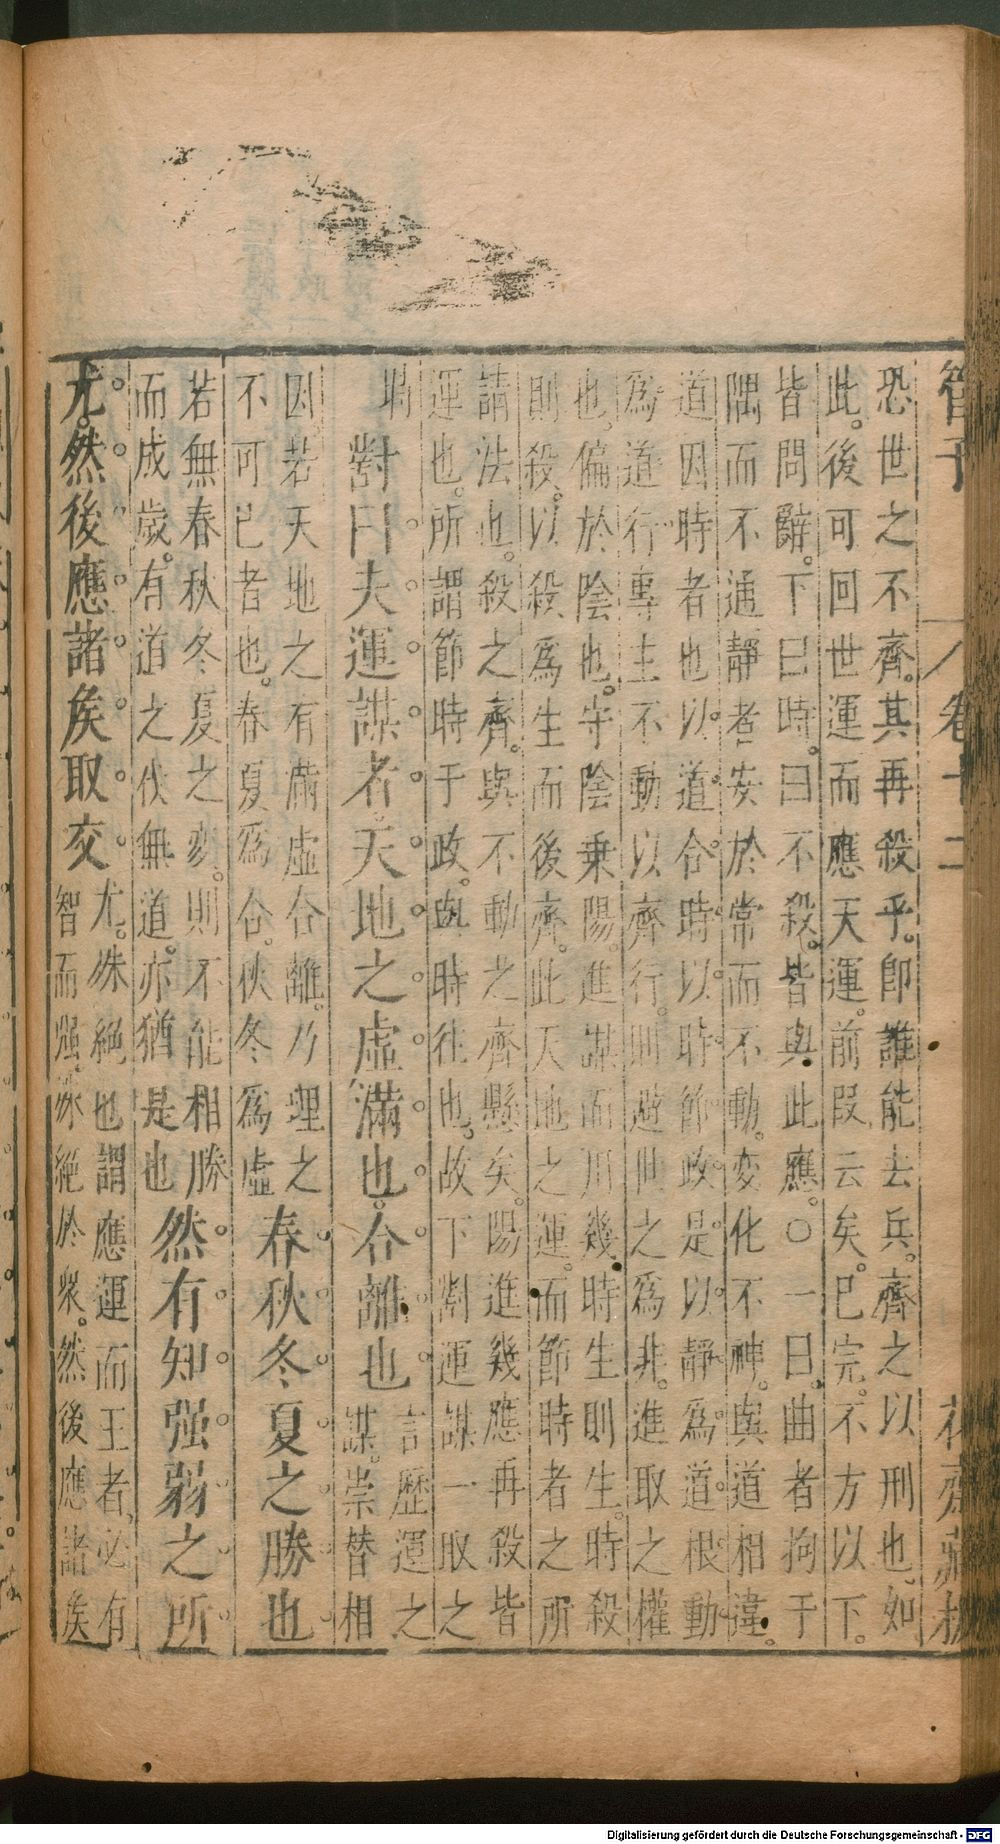 管子
卷十二
花齋藏板
恐世之不齊其再殺乎即誰能去兵齊之以刑也如
此後可回世運而應天運前叚云矣已完不方以下
皆問辭下曰時曰不殺皆與此應○一曰曲者拘于
隅而不通靜者安於常而不動変化不神與道相違
道因時者也以道合時以時節政是以靜為道根動
為道行專主不動以齊行則避世之為非進取之權
也偏於陰也守陰乗陽進謀而川幾時生則生時殺
則殺以殺為生而後齊此天地之運而節時者之所
請法也殺之齊與不動之齊懸矣陽進幾應再殺皆
運也所謂節時于政與時往也故下對運謀一取之
時
對曰夫運謀者天地之虛滿也合離也
言歷運之
謀崇替相
因若天地之有滿虛合離乃理之
不可已者也春夏為合秋冬為虛
春秋冬夏之勝也
若無春秋冬夏之変則不能相勝
而成歲有道之伐無道亦猶是也
然有知强弱之所
尤然後應諸矦取交
尤殊絕也謂應運而王者必有
智而强殊絕於衆然後應諸矦
Digitalisierung gefördert durch die Deutsche Forschungsgemeinschaft - DFG